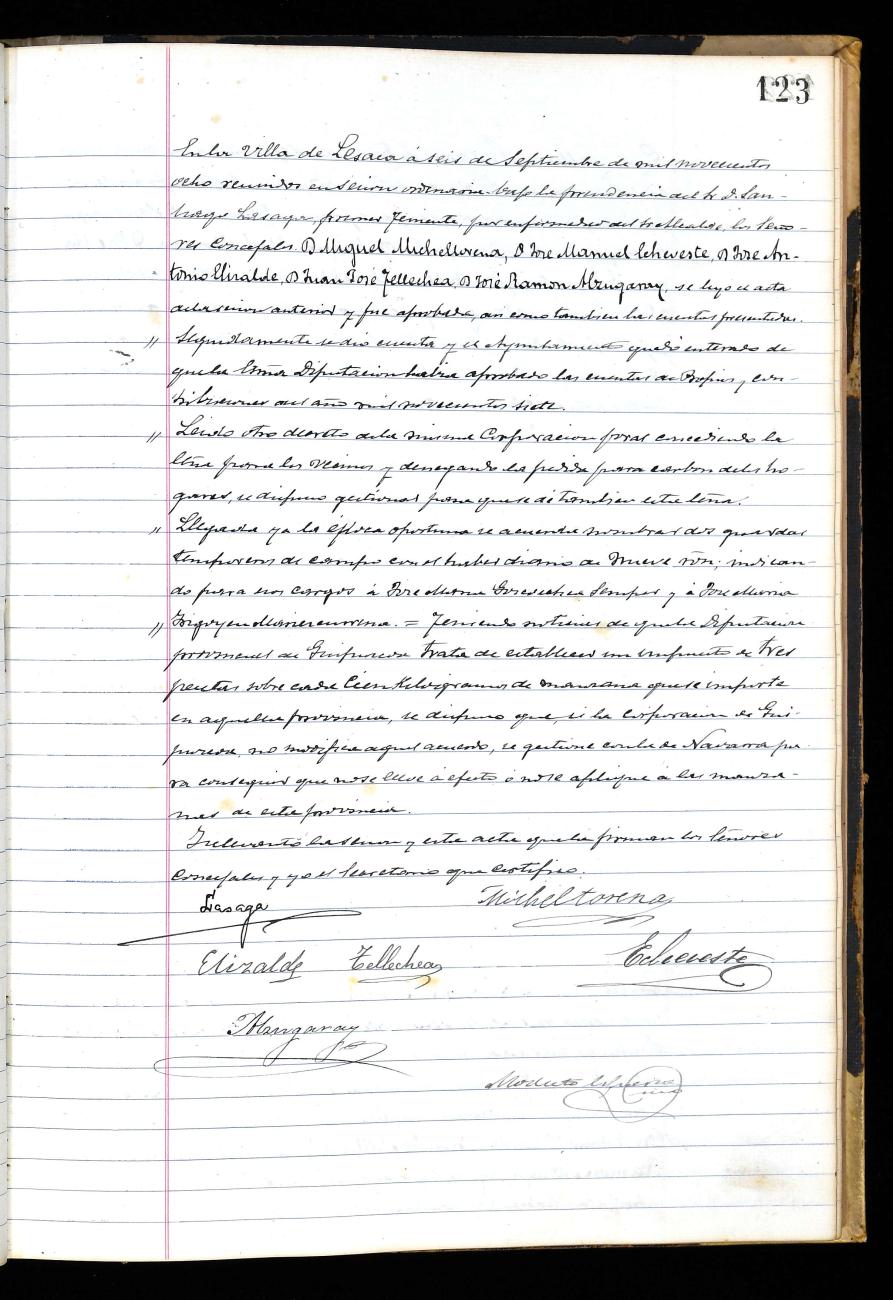 123
En la Villa de Lesaca á seis de Septiembre de mil novecientos
ocho reunidos en sesion ordinaria bajo la presidencia del Sr. D. San-
tiago Lasaga, primer Teniente, por enfermedad del Sr Alcalde, los Seño-
res Concejales D Miguel Micheltorena, D Jose Manuel Echeveste, D Jose An-
tonio Elizalde, D Juan José Tellechea, D José Ramon Alzugaray, se leyó el acta
de la sesion anterior y fue aprobada, asi como tambien las cuentas presentadas.
" Seguidamente se dio cuenta y el Ayuntamiento quedó enterado de
que la Excma Diputacion habia aprobado las cuentas de Propios y con-
tribuciones del año mil novecientos siete.
" Leido otro decreto de la misma Corporacion foral concediendo la
leña para los vecinos y denegando la pedida para carbon de los ho-
gares, se dispuso gestionar para que se dé tambien esta leña.
" Llegada ya la época oportuna se acuerda nombrar dos guardas
temporeros de campo con el haber diario de nueve rvn; indican-
do para esos cargos á Jose Maria Semper y á Jose Maria
" Irigoyen . = Teniendo noticias de que la Diputacion
provincial de Guipuzcoa trata de establecer un impuesto de tres
pesetas sobre cada cien kilogramos de manzana que se importe
en aquella provincia, se dispuso que, si la Corporacion de Gui-
puzcoa no modifica aquel acuerdo, se gestione con la de Navarra pa-
ra conseguir que no se lleve á efecto ó no se aplique á las manza-
nas de esta provincia.
Se levantó la sesion y esta acta que la firman los Señores
Concejales y yo el Secretario que certifico.
Lasaga Micheltorena
Elizalde Tellechea Echeveste
Alzugaray
Modesto